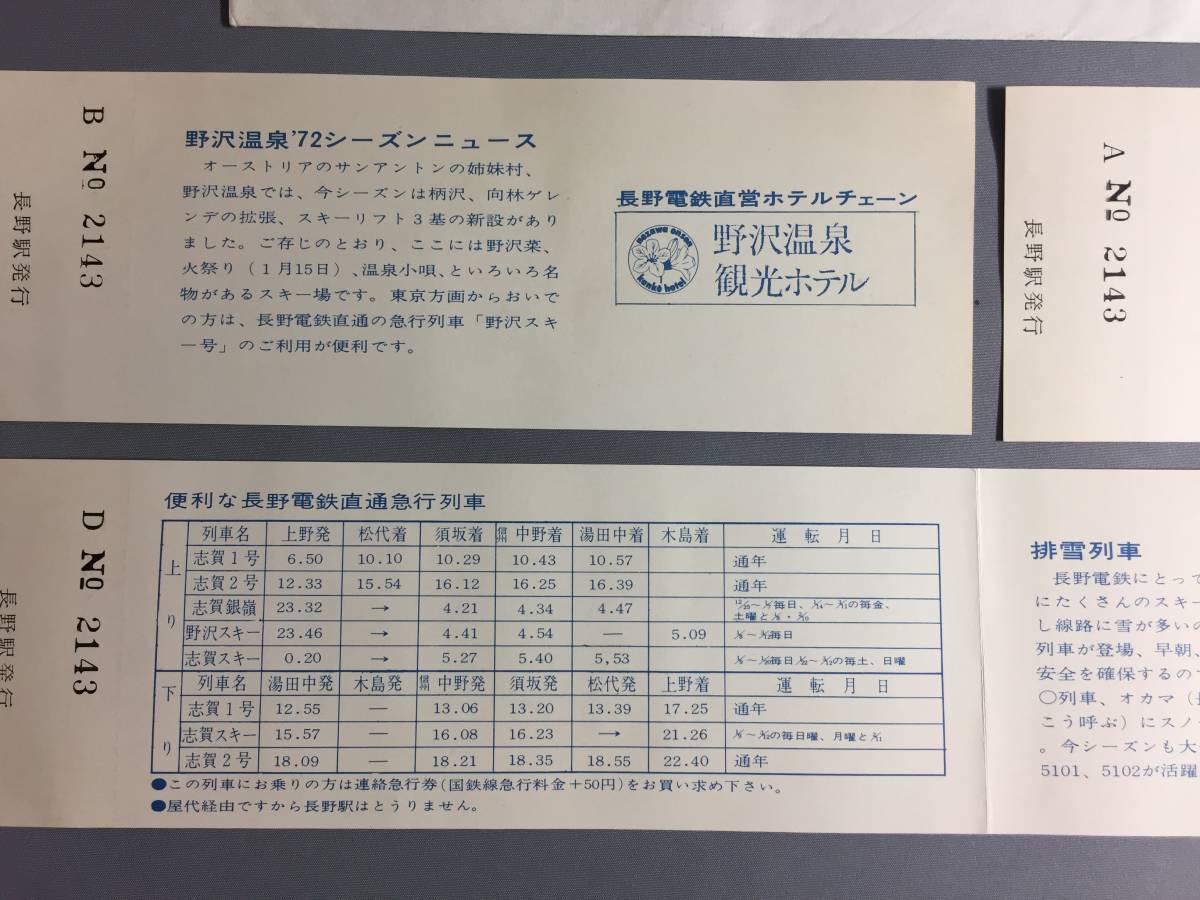 B № 2143
長野駅発行
野沢温泉'72シーズンニュース
オーストリアのサンアントンの姉妹村、
野沢温泉では、今シーズンは柄沢、向林ゲレ
ンデの拡張、スキーリフト3基の新設があり
ました。ご存じのとおり、ここには野沢菜、
火祭り(1月15日)、温泉小唄、といろいろ名
物があるスキー場です。東京方画からおいで
の方は、長野電鉄直通の急行列車「野沢スキ
ー号」のご利用が便利です。
長野電鉄直営ホテルチェーン
nozawa onsen
kanko hotel
野沢温泉
観光ホテル
A № 2143
長野駅発行
D № 2143
長野駅発行
便利な長野電鉄直通急行列車
上り
列車名 上野発 松代着 須坂着 信州中野着 湯田中着 木島着 運転月日
志賀1号 6.50 10.10 10.29 10.43 10.57 通年
志賀2号 12.33 15.54 16.12 16.25 16.39 通年
志賀銀嶺 23.32 → 4.21 4.34 4.47
野沢スキー 23.46 → 4.41 4.54 — 5.09
志賀スキー 0.20 → 5.27 5.40 5,53
下り
列車名 湯田中発 木島発 信州中野発 須坂発 松代発 上野着 運転月日
志賀1号 12.55 — 13.06 13.20 13.39 17.25 通年
志賀スキー 15.57 — 16.08 16.23 → 21.26
志賀2号 18.09 — 18.21 18.35 18.55 22.40 通年
●この列車にお乗りの方は連絡急行券(国鉄線急行料金+50円)をお買い求め下さい。
●屋代経由ですから長野駅はとうりません。
排雪列車
長野電鉄にとって
にたくさんのスキー
し線路に雪が多いの
列車が登場、早朝、
安全を確保するので
○列車、オカマ(長
こう呼ぶ)にスノ
。今シーズンも大
5101、5102が活躍